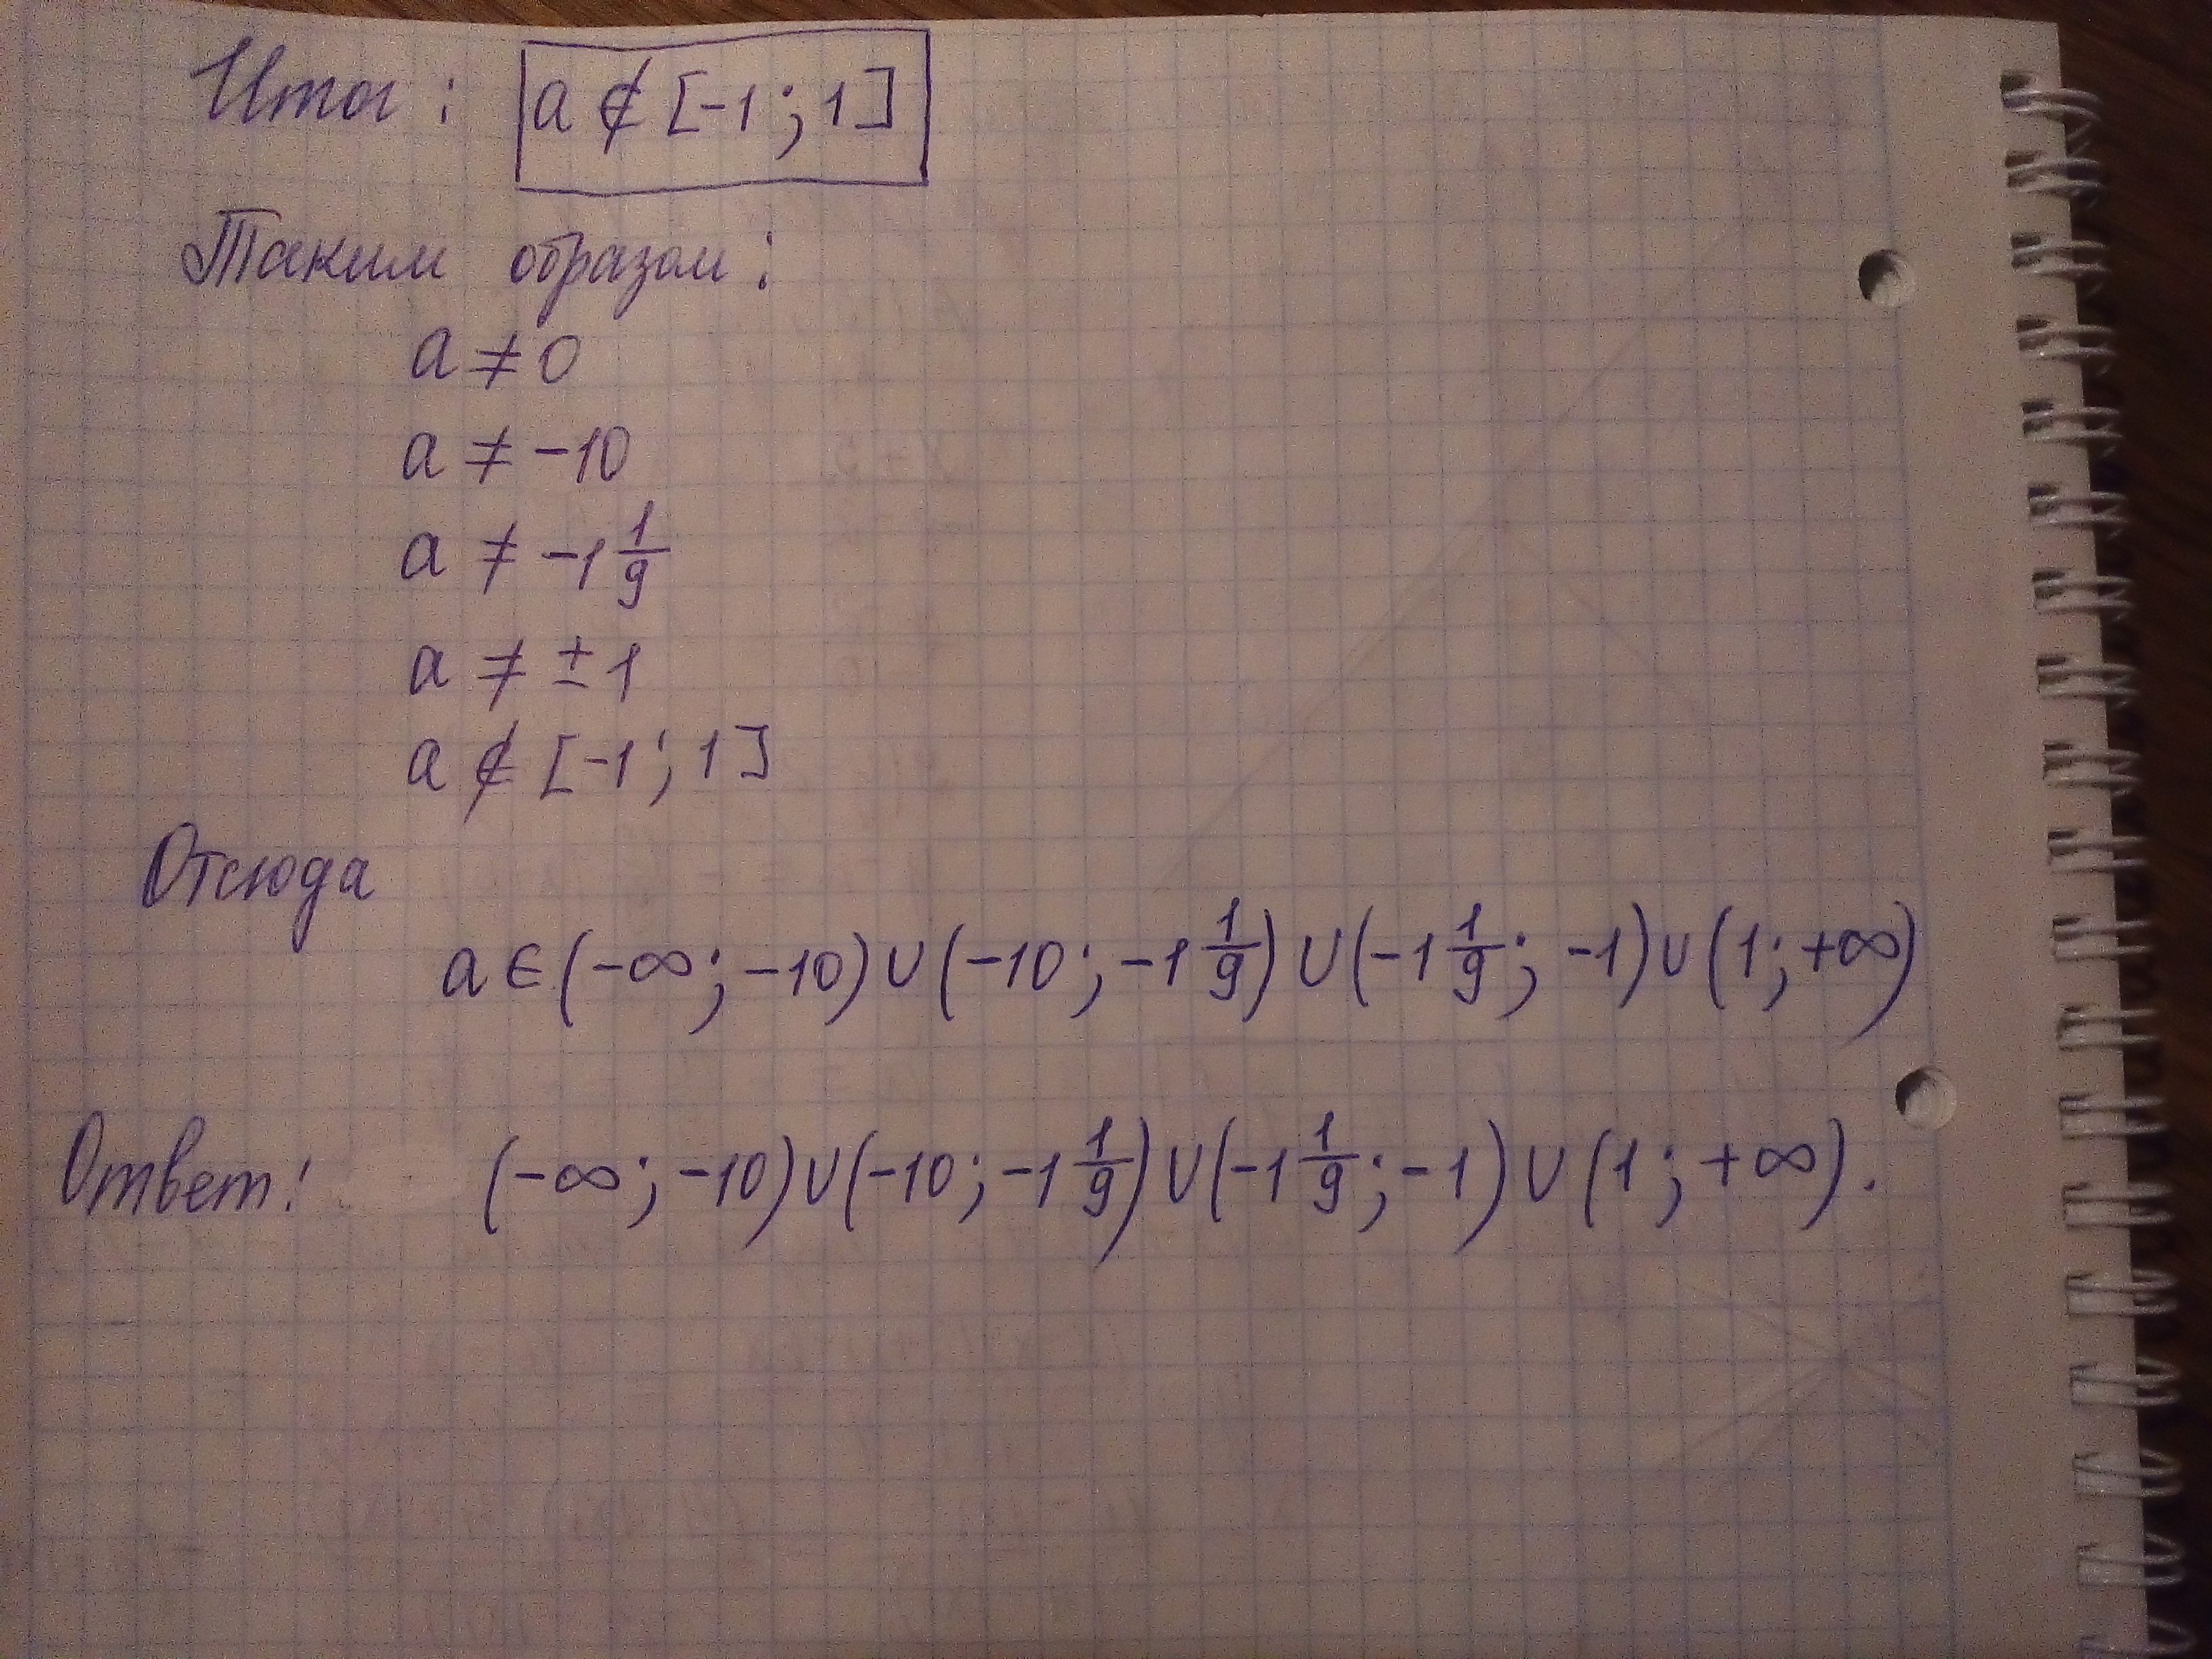 Итог: a ∉ [-1; 1]
Таким образом:
a ≠ 0
a ≠ -10
a ≠ -1 1/9
a ≠ ±1
a ∉ [-1; 1]
Отсюда
a ∈ (-∞; -10) ∪ (-10; -1 1/9) ∪ (-1 1/9; -1) ∪ (1; +∞)
Ответ: (-∞; -10) ∪ (-10; -1 1/9) ∪ (-1 1/9; -1) ∪ (1; +∞).